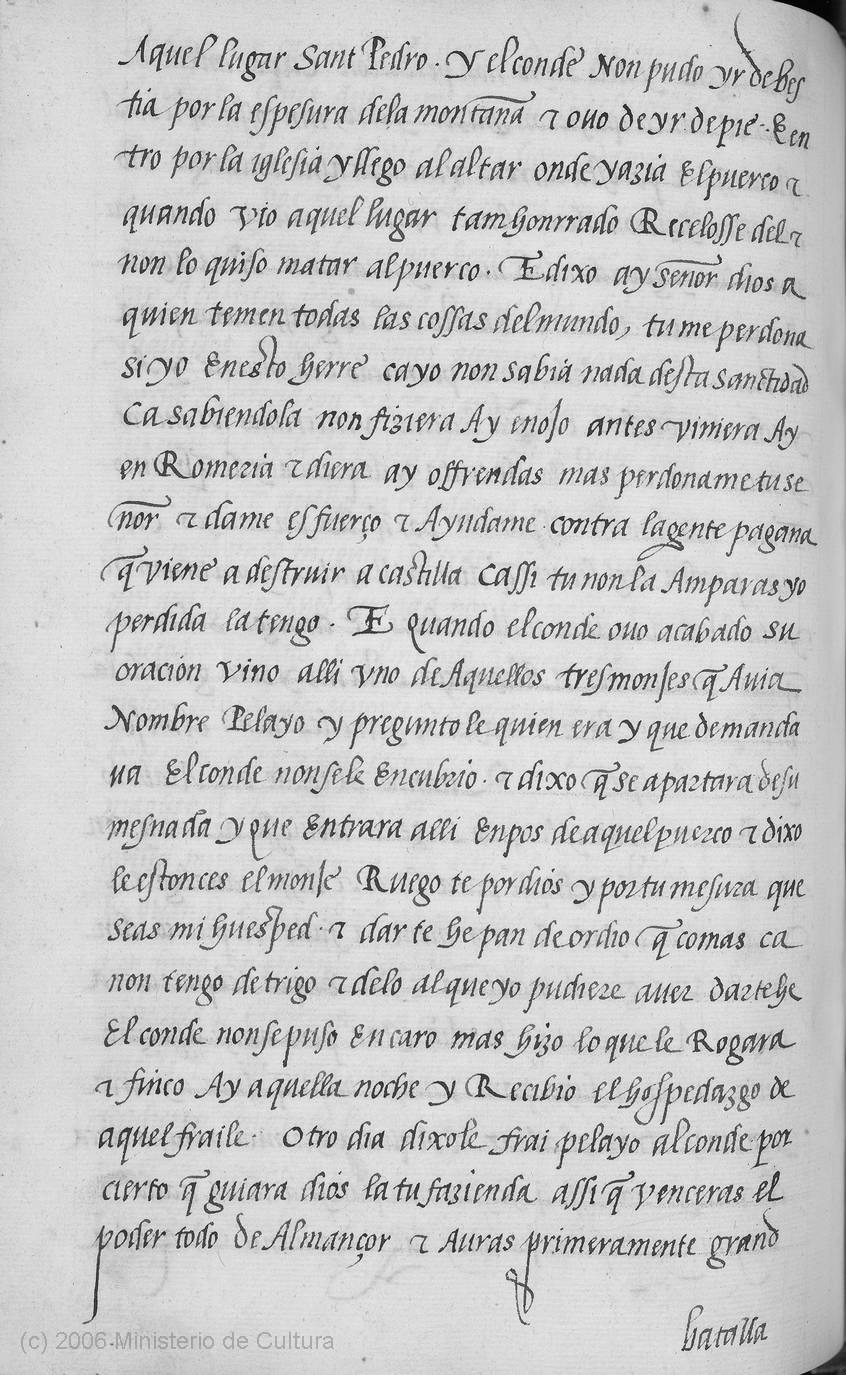 Aquel lugar Sant Pedro. y el conde Non pudo yr de bes
tia por la espesura dela montaña & ovo de yr de pie. E en
tro por la iglesia y llego al altar onde yazia El puerco &
quando vio aquel lugar tam honrrado Recelosse del &
non lo quiso matar al puerco. E dixo ay señor dios a
quien temen todas las cossas del mundo, tu me perdona
si yo En esto herre ca yo non sabia nada desta sanctidad
Ca sabiendola non fiziera Ay enojo antes viniera Ay
en Romeria & diera ay offrendas mas perdoname tu se
ñor & dame esfuerço & Ayudame contra la gente pagana
q̃ viene a destruir a castilla Ca ssi tu non la Amparas yo
perdida la tengo. E quando el conde ovo acabado su
oracion vino alli vno de Aquellos tres monjes q̃ Avia
Nombre Pelayo y pregunto le quien era y que demanda
va El conde non se le Encubrio. & dixo q̃ se apartara de su
mesnada y que Entrara alli Enpos de aquel puerco & dixo
le estonces el monje Ruego te por dios y por tu mesura que
seas mi huesped. & dar te he pan de ordio q̃ comas ca
non tengo de trigo & delo al que yo pudiere aver darte he
El conde non se puso En caro mas hizo lo que le Rogara
& finco Ay aquella noche y Recibio el hospedazgo de
aquel fraile. Otro dia dixole frai pelayo al conde por
cierto q̃ guiara dios la tu fazienda assi q̃ venceras el
poder todo de Almançor & Auras primeramente grand
batalla
(c) 2006 Ministerio de Cultura